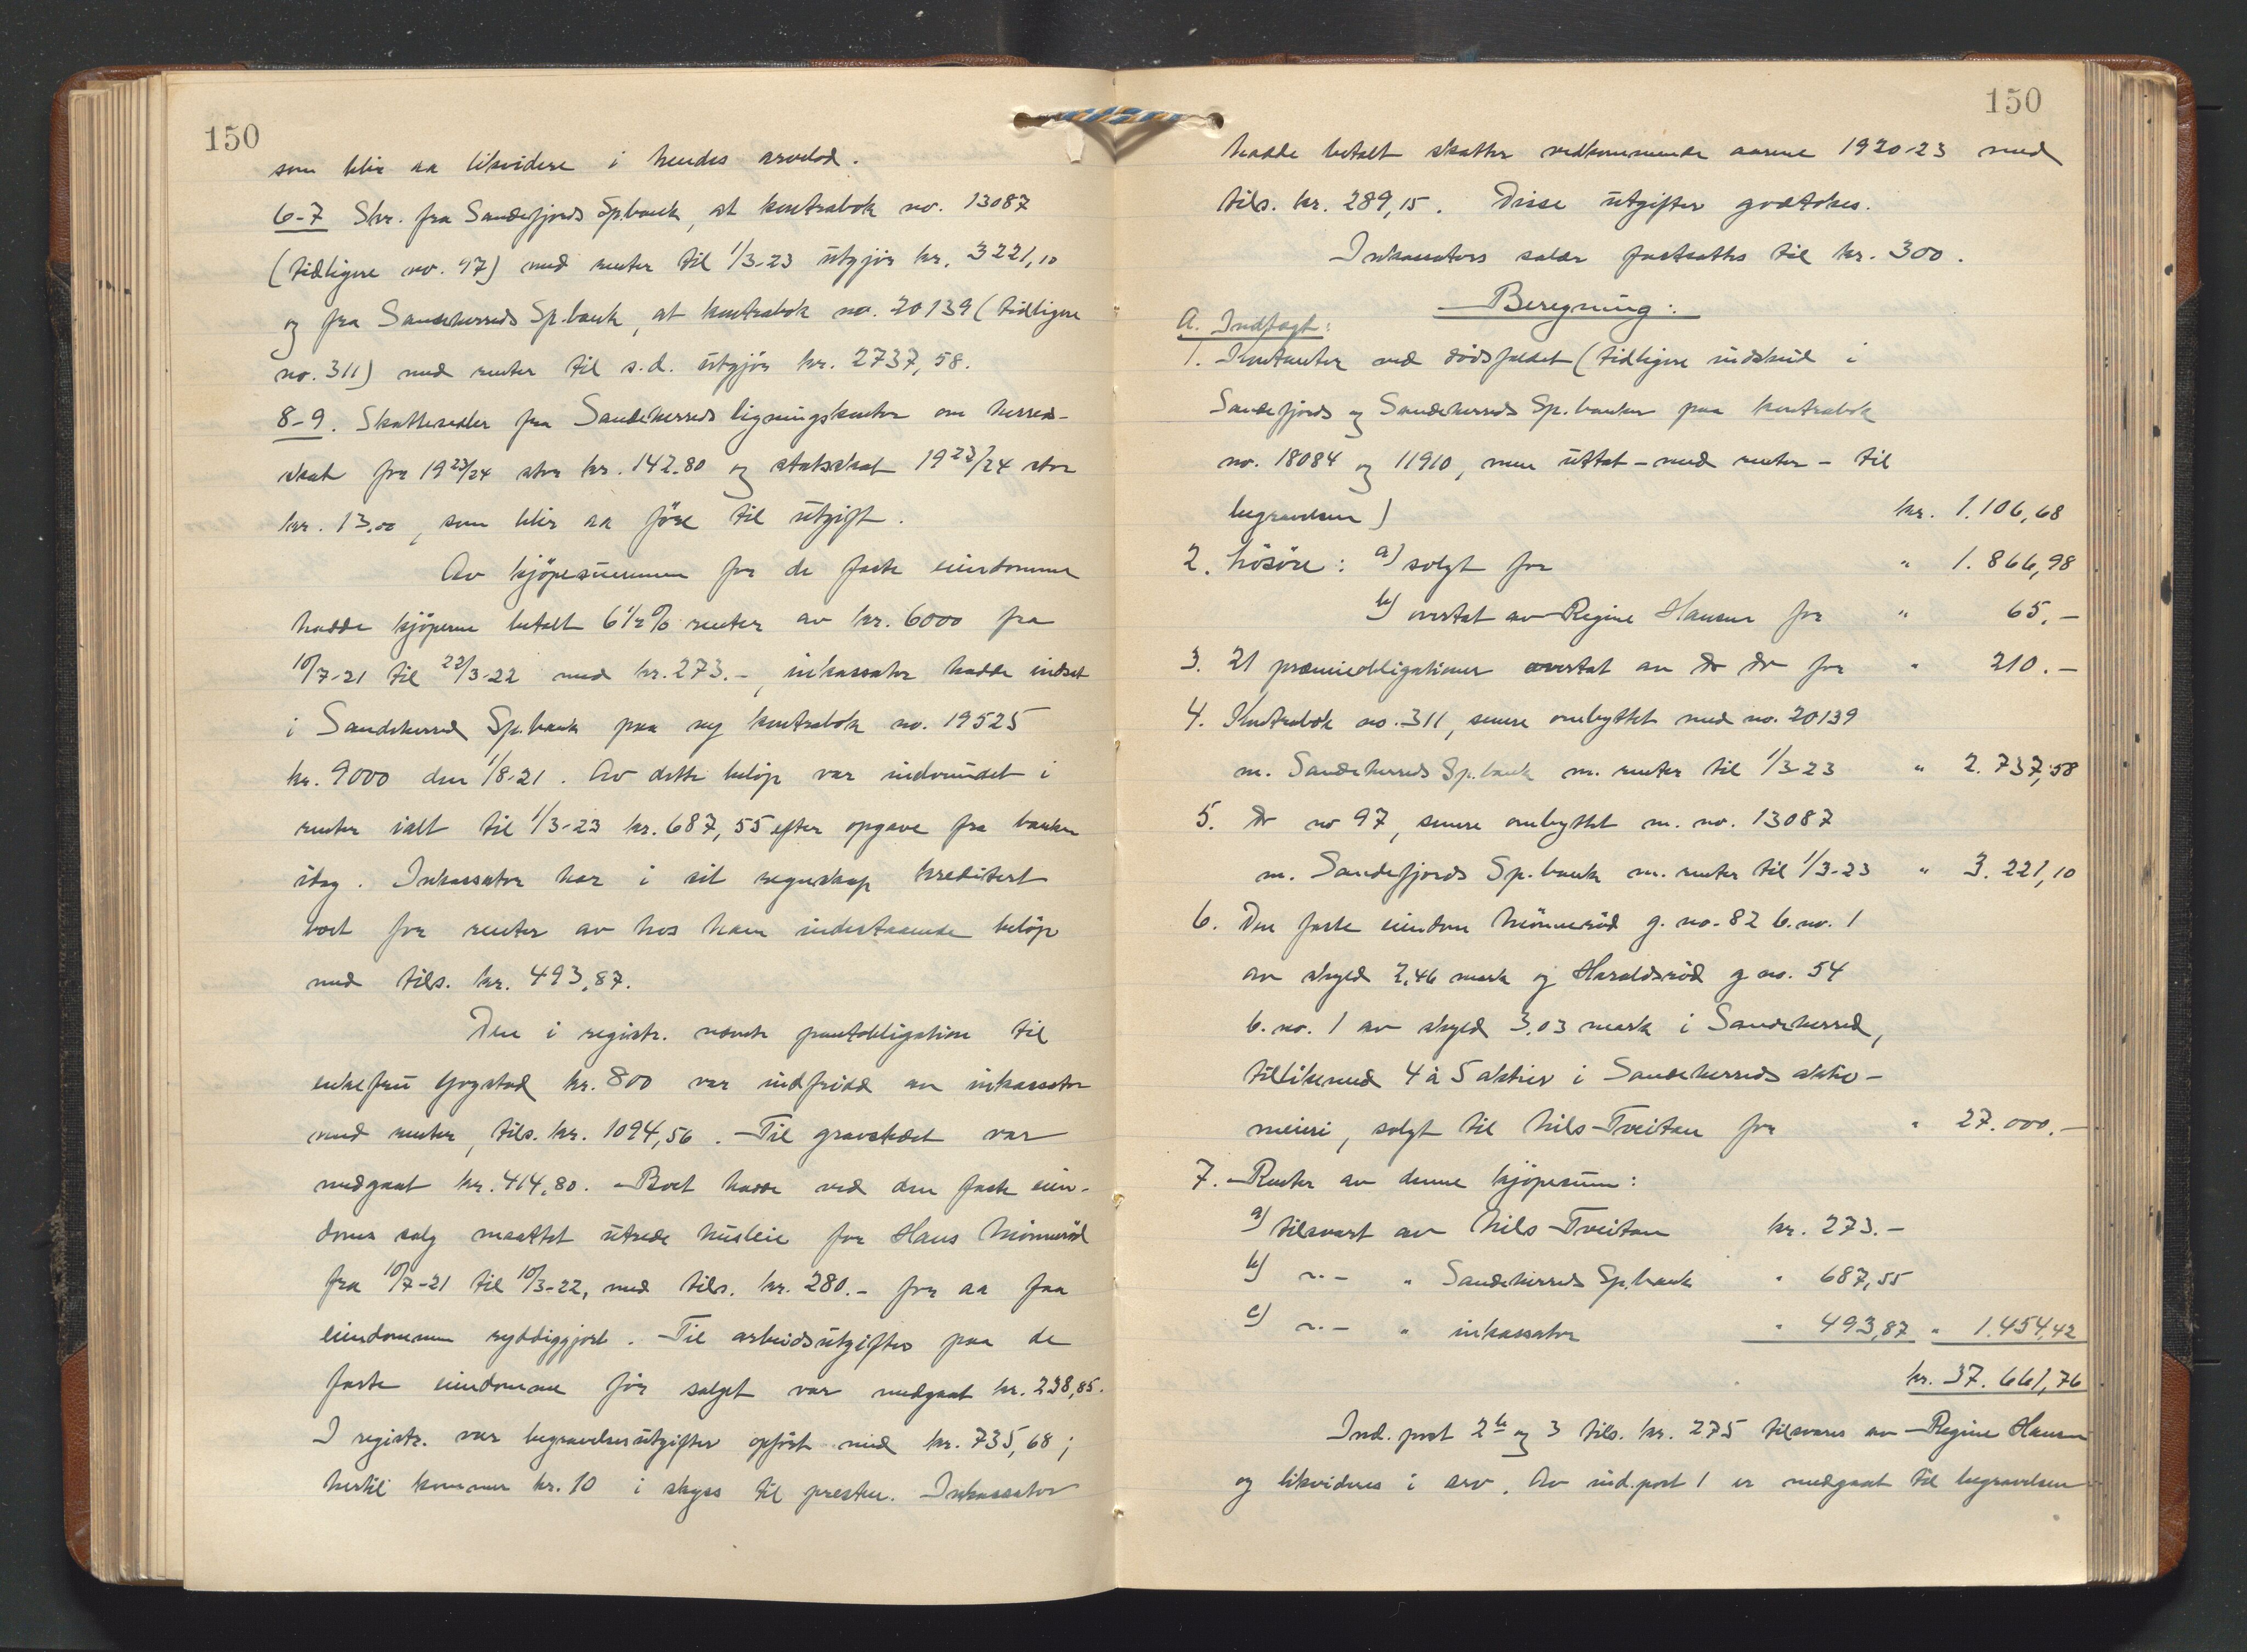 150
som blir aa likvidere i hendes arvelod.
6-7 Skr. fra Sandefjords Sp.bank, at kontrabok no. 13087
(tidligere no. 97) med renter til 1/3-23 utgjør kr. 3221,10
og fra Sandeherreds Sp.bank, at kontrabok no. 20139 (tidligere
no. 311) med renter til s.d. utgjør kr. 2737,58.
8-9. Skattesedler fra Sandeherreds ligningskontor om herreds-
skat for 1923/24 stor kr. 142.80 og statsskat 1923/24 stor
kr. 13,00, som blir aa føre til utgift.
Av kjøpesummen for de faste eiendomme
hadde kjøperne betalt 6 1/2 % renter av kr. 6000 fra
10/7-21 til 22/3-22 med kr. 273.-, inkassator hadde indsat
i Sandeherred Sp.bank paa ny kontrabok no. 19525
kr. 9000 den 1/8-21. Av dette beløp var indvundet i
renter ialt til 1/3-23 kr. 687,55 efter opgave fra banken
idag. Inkassator har i sit regnskap kreditert
boet for renter av hos ham indestaaende beløp
med tils. kr. 493,87.
Den i registr. nævnte pantobligation til
enkefru Gogstad kr. 800 var indfridd av inkassator
med renter, tils. kr. 1094,56. - Til gravstedet var
medgaat kr. 414,80. - Boet hadde ved den faste eien-
doms salg maattet utrede husleie for Hans Mönneröd
fra 10/7-21 til 10/3-22, med tils. kr. 280.- for aa faa
eiendommen ryddiggjort. - Til arbeidsutgifter paa de
faste eiendomme før salget var medgaat kr. 238,85.
I registr. var begravelsesutgifter opført med kr. 735,68;
hertil kommer kr. 10 i skyss til presten. Inkassator
150
hadde betalt skatter vedkommende aarene 1920-23 med
tils. kr. 289,15. Disse utgifter godtokes.
Inkassators salær fastsattes til kr. 300.
Beregning:
A. Indtægt:
1. Kontanter ved dødsfaldet (tidligere indskud i
Sandefjords og Sandeherreds Sp.banker paa kontrabok
no. 18084 og 11910, men uttat - med renter - til
begravelsen) kr. 1.106,68
2. Løsøre: a) solgt for " 1.866,98
b) overtat av Regine Hansen for " 65.-
3. 21 præmieobligationer overtat av do do for " 210.-
4. Kontrabok no. 311, senere ombyttet med no. 20139
m. Sandeherreds Sp.bank m. renter til 1/3-23 " 2.737,58
5. do no 97, senere ombyttet m. no. 13087
m. Sandefjords Sp.bank m. renter til 1/3-23 " 3.221,10
6. Den faste eiendom Mönneröd g. no. 82 b. no. 1
av skyld 2,46 mark og Haraldsröd g no. 54
b. no. 1 av skyld 3,03 mark i Sandeherred,
tillikemed 4 à 5 aktier i Sandeherreds aktie-
meieri, solgt til Nils Tveitan for " 27.000.-
7. Renter av denne kjøpesum:
a) tilsvart av Nils Tveitan kr. 273.-
b) -"- " Sandeherreds Sp.bank " 687,55
c) -"- " inkassator " 493,87 " 1.454,42
kr. 37.661,76
Ind. post 2b og 3 tils. kr. 275 tilsvares av Regine Hansen
og likvideres i arv. Av ind.post 1 er medgaat til begravelsen